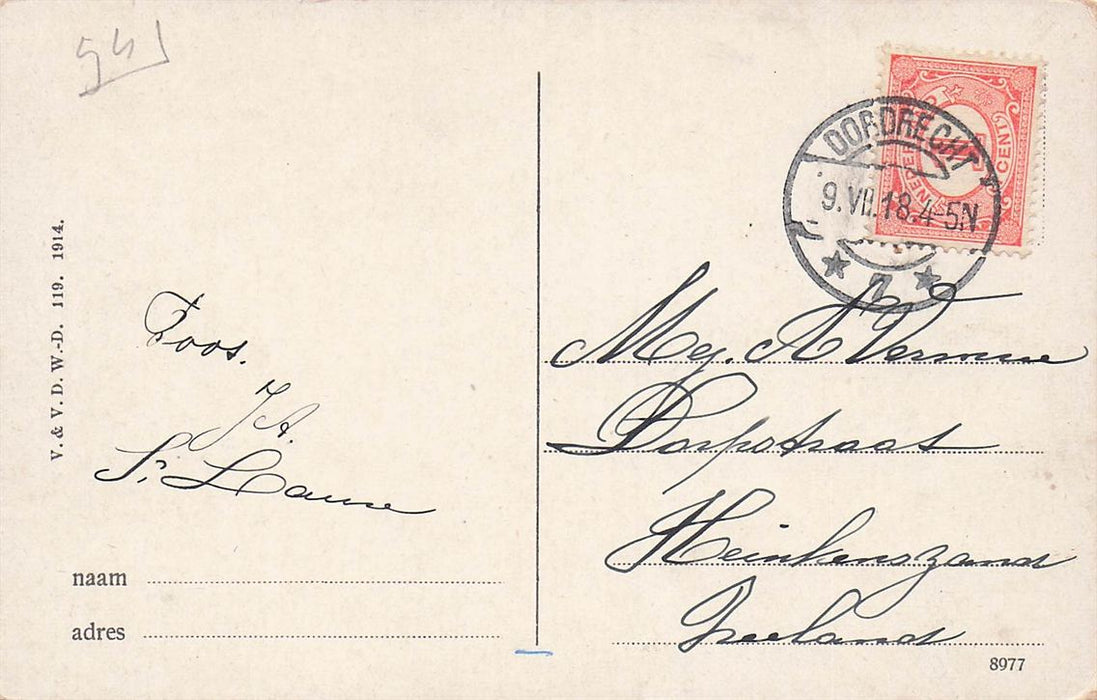 V. & V. D. W.-D. 119. 1914.
Toos.
J. A.
naam
adres
DORDRECHT
9.VII.18.4-5N
CENT
Mej. A Vermue
Dorpstraat
Heinkenszand
Zeeland
8977